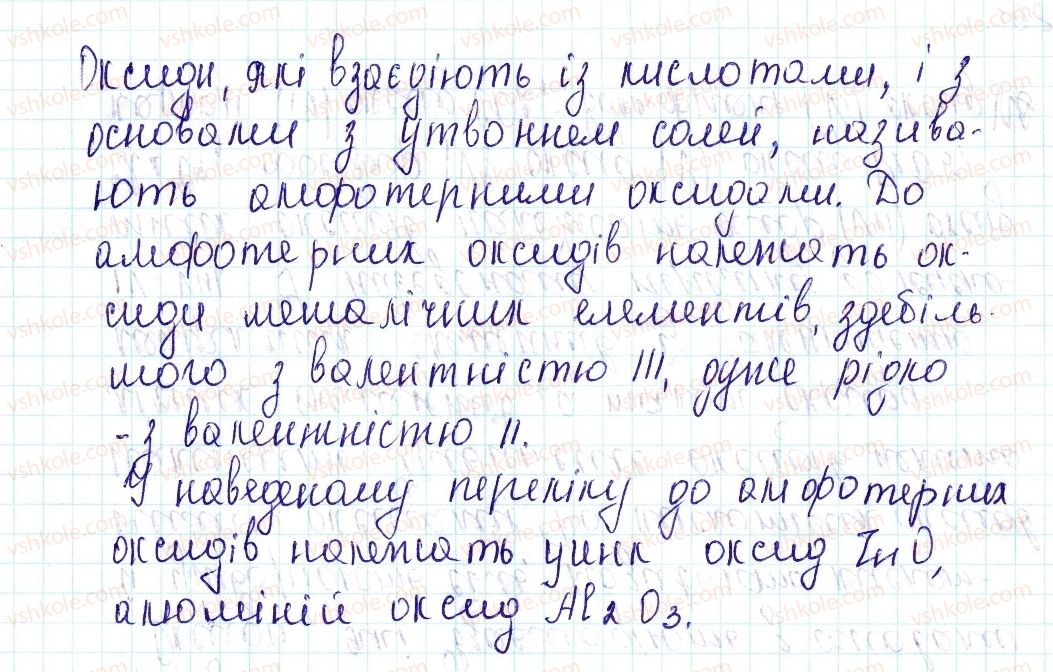 Оксиди, які взаєдіють із кислотами, і з
основами з утвоннем солей, назива-
ють амфотерними оксидами. До
амфотерних оксидів належать ок-
сиди металічних елементів, здебіль-
шого з валентністю III, дуже рідко
- з валентністю II.
У наведеному переліку до амфотерних
оксидів належать цинк оксид ZnO,
алюміній оксид Al2O3.